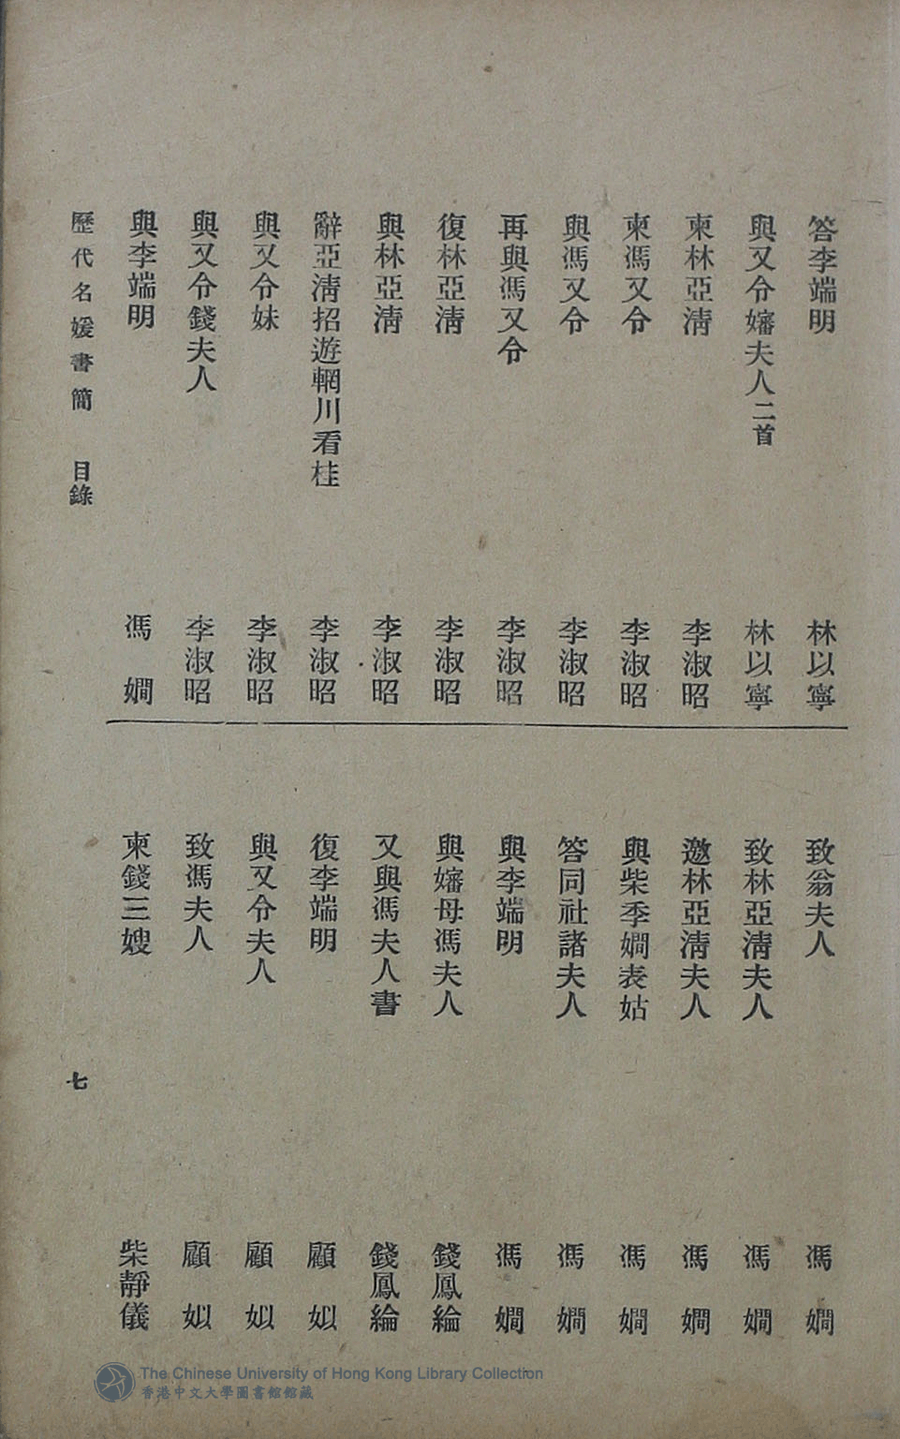 答李端明 林以寧
與又令嬸夫人二首 林以寧
柬林亞淸 李淑昭
柬馮又令 李淑昭
與馮又令 李淑昭
再與馮又令 李淑昭
復林亞淸 李淑昭
與林亞淸 李淑昭
辭亞淸招遊輞川看桂 李淑昭
與又令妹 李淑昭
與又令錢夫人 李淑昭
與李端明 馮嫻
致翁夫人 馮嫻
致林亞淸夫人 馮嫻
邀林亞淸夫人 馮嫻
與柴季嫻表姑 馮嫻
答同社諸夫人 馮嫻
與李端明 馮嫻
與嬸母馮夫人 錢鳳綸
又與馮夫人書 錢鳳綸
復李端明 顧姒
與又令夫人 顧姒
致馮夫人 顧姒
柬錢三嫂 柴靜儀
歷代名媛書簡 目錄
七
The Chinese University of Hong Kong Library Collection
香港中文大學圖書館館藏